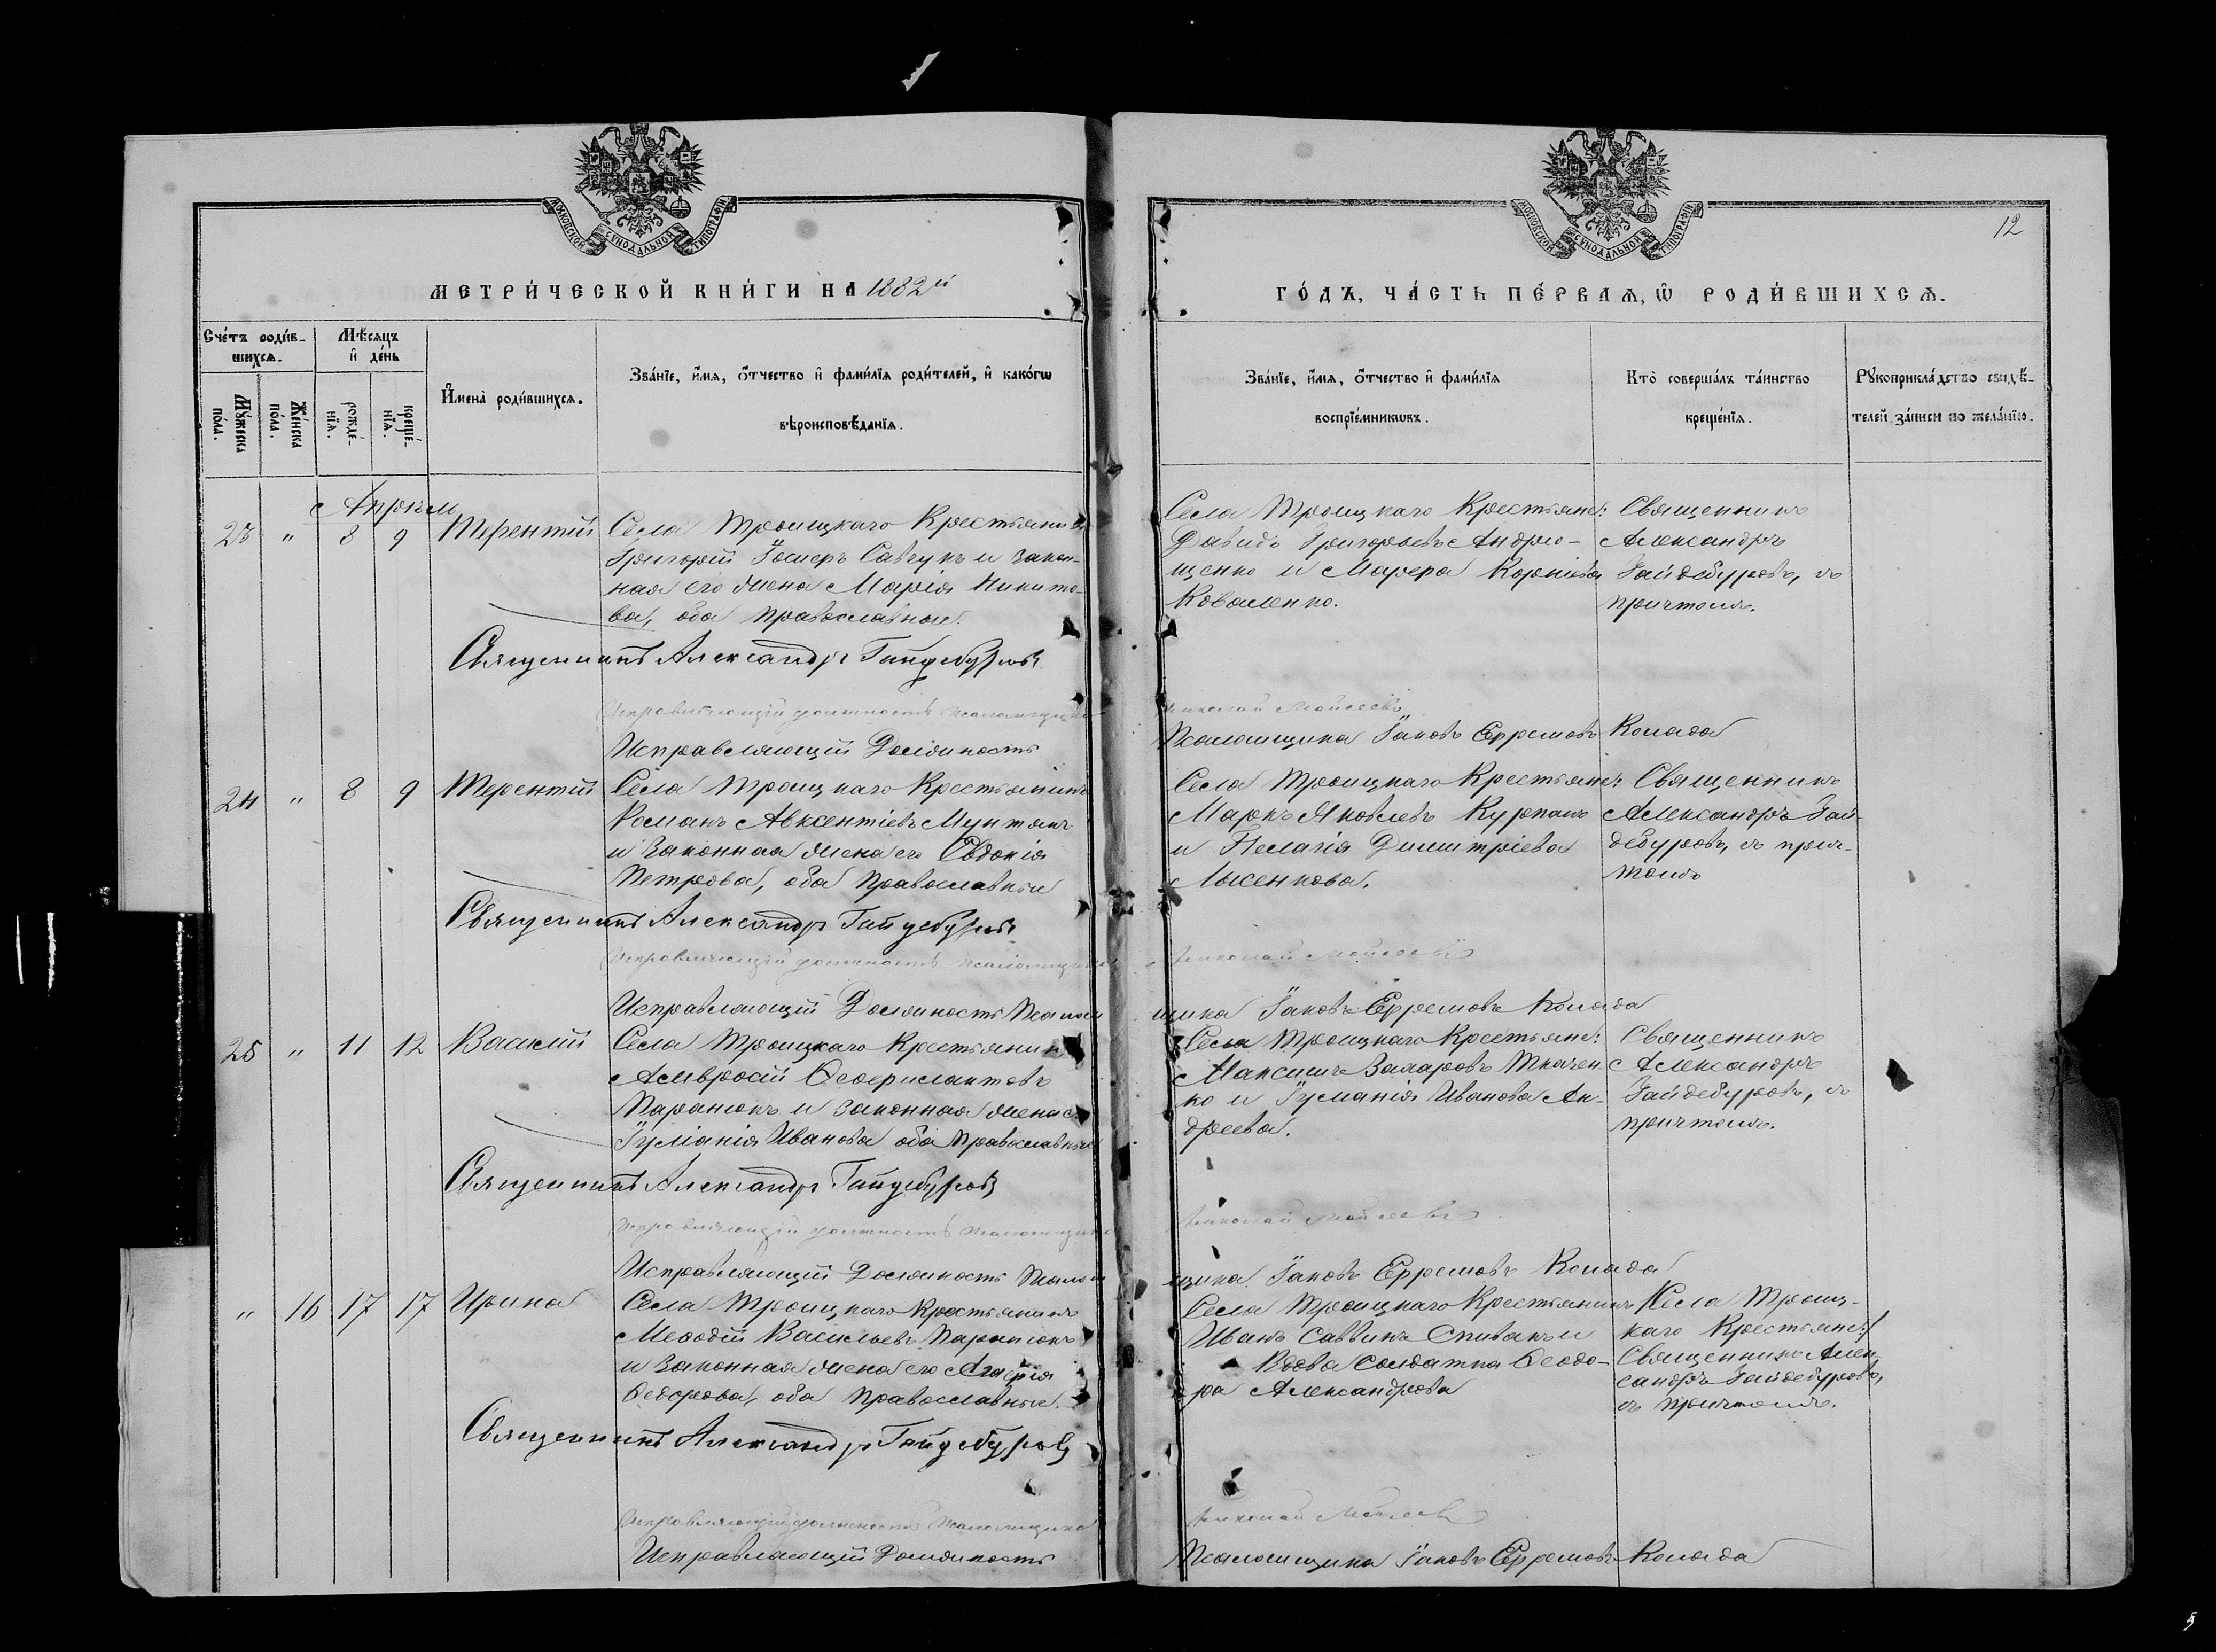 МОСКОВСКОЙ СѴНОДАЛЬНОЙ ТИПОГРАФІИ
МЕТРИ́ЧЕСКОЙ КНИ́ГИ НА 1882й
Сче́тъ роди́в-
шихсѧ.
Мѣ́сѧцъ
и҆ де́нь
Мꙋ́жеска
по́ла.
Же́нска
по́ла.
рожде́-
нїѧ.
креще́-
нїѧ.
И҆мена̀ роди́вшихсѧ.
Зва́нїе, и҆́мѧ, ѻ҆́тчество и҆ фами́лїѧ роди́телей, и҆ како́гѡ
вѣроисповѣ́данїѧ.
Апрѣль
23 " 8 9 Терентій
Села Троицкаго Крестьянинъ
Григорій Савчукъ и закон-
ная его жена Марія Никито-
ва, оба православные.
Священникъ Александръ Гайдебуровъ
Исправляющій должность псаломщика
Исправляющій Должность
24 " 8 9 Терентій
Села Троицкаго Крестьянинъ
Романъ Авксентіевъ Мунтянъ
и Законная жена его Евдокія
Петрова, оба Православные
Священникъ Александръ Гайдебуровъ
Исправляющій должность псаломщика
Исправляющій Должность Псалом
25 " 11 12 Василій
Села Троицкаго Крестьянинъ
Амвросій
Паранюкъ и законная жена его
Іуліанія Иванова оба Православные
Священникъ Александръ Гайдебуровъ
Исправляющій должность псаломщика
Исправляющій Должность Псалом
" 16 17 17 Ирина
Села Троицкаго Крестьянинъ
Меѳодій Васильевъ Паранюкъ
и Законная жена его
Ѳедорова, оба Православные.
Священникъ Александръ Гайдебуровъ
Исправляющій должность Псаломщика
Исправляющій Должность
12
МОСКОВСКОЙ СѴНОДАЛЬНОЙ ТИПОГРАФІИ
ГО́ДЪ, ЧА́СТЬ ПЕ́РВАѦ, Ѽ РОДИ́ВШИХСѦ.
Зва́нїе, и҆́мѧ, ѻ҆́тчество и҆ фами́лїѧ
воспрїе́мникѡвъ.
Кто̀ соверша́лъ та́инство
креще́нїѧ.
Рꙋкоприкла́дство свидѣ́-
телей за́писи по жела́нїю.
Села Троицкаго Крестьяне:
Давидъ Григорьевъ Андрю-
щенко и Марѳа Корніева
Коваленко.
Священникъ
Александръ
Гайдебуровъ, съ
причтомъ.
Николай Мойсеевъ
Псаломщика Іаковъ Ефремовъ Коляда
Села Троицкаго Крестьяне:
Маркъ Яковлевъ Курпанъ
и Пелагія Димитріева
Лысенкова.
Священникъ
Александръ Гай-
дебуровъ, съ прич-
томъ
Николай Мойсеевъ
щика Іаковъ Ефремовъ Коляда
Села Троицкаго Крестьяне:
Максимъ Захаровъ Ткачен-
ко и Іуліанія Иванова Ан-
дреева.
Священникъ
Александръ
Гайдебуровъ, съ
причтомъ.
Николай Мойсеевъ
щика Іаковъ Ефремовъ Коляда
Села Троицкаго Крестьянинъ
Иванъ Саввинъ Спиванъ и
Вдова Солдатка Ѳеодо-
ра Александрова
/Села Троиц-
каго Крестьяне:/
Священникъ Алек-
сандръ Гайдебуровъ,
съ причтомъ.
Николай Мойсеевъ
Псаломщика Іаковъ Ефремовъ Коляда